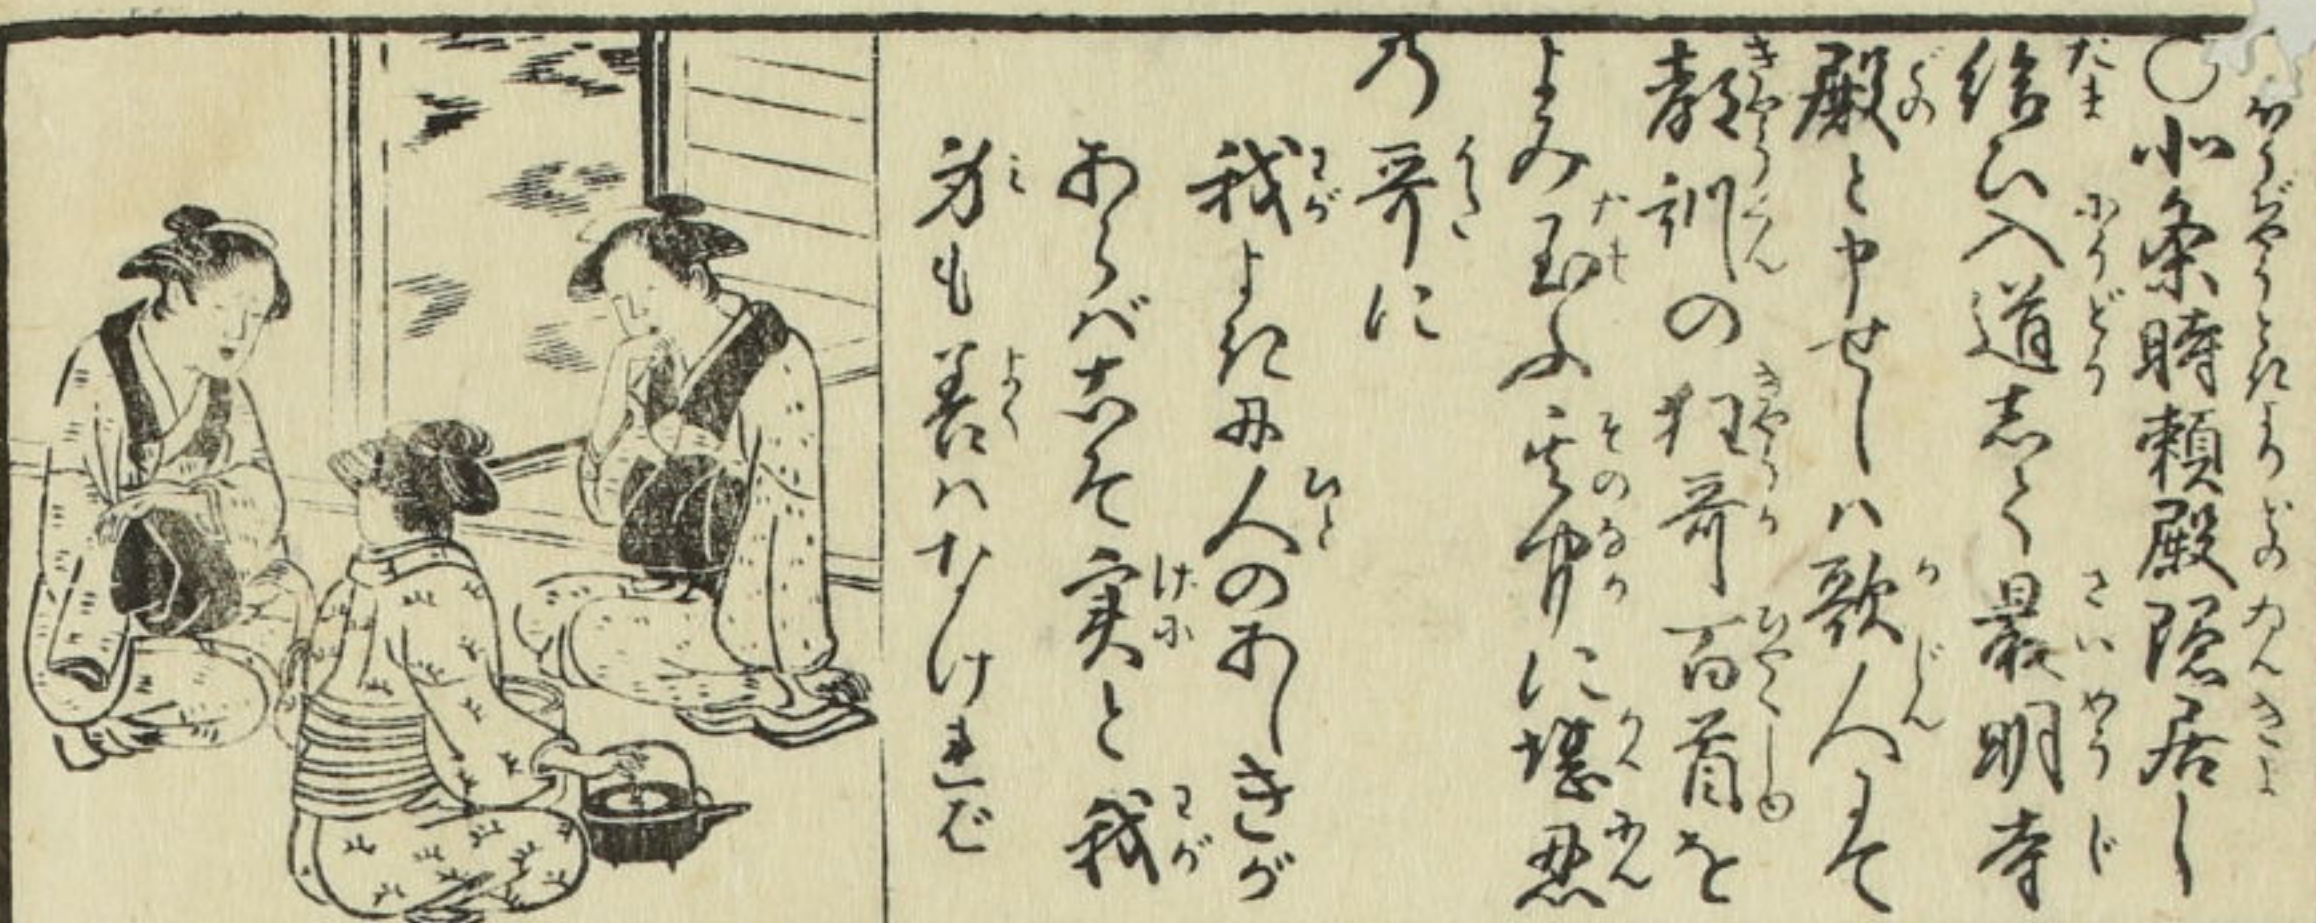 ○北条時頼殿隠居し
給ひ入道志て最明寺
殿と申せしハ歌人にて
教訓の狂哥百首を
よみ玉ふ其中に堪忍
乃哥に
我よきに人のあしきが
あらばこそ実と我
身も善ハなけれど